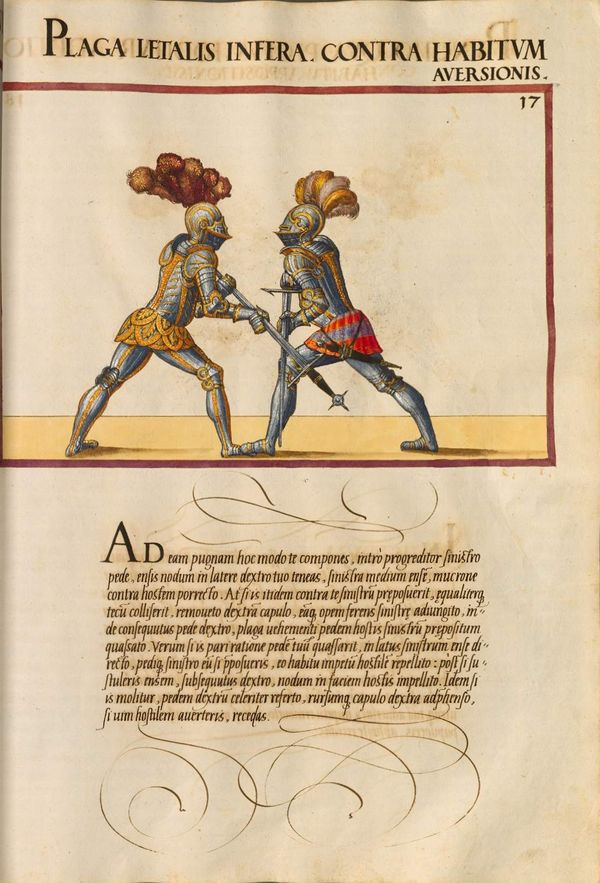 PLAGA LETALIS INFERA. CONTRA HABITVM
AVERSIONIS.
17
AD eam pugnam hoc modo te compones, intrò progreditor sinistro
pede, ensis nodum in latere dextro tuo teneas, sinistra medium ensē, mucrone
contra hostem porrecto. At si is itidem contra te sinistrū pręposuerit, ęqualiterq
tecū colliserit, remoueto dextrā capulo, eāq opem ferens sinistrę adiungito, in⸗
de consequutus pede dextro, plaga uehementi pedem hostis sinistrū prępositum
quassato. Verum si is pari ratione pede tuū quassarit, in latus sinistrum ense di⸗
recto, pediq sinistro eū si pposueris, eo habitu impetū hostilē repellito: post si su⸗
stuleris ensem, subsequutus dextro, nodum in faciem hostis impellito. Idem si
is molitur, pedem dextrū celeriter referto, rursumq capulo dextra adphenso,
si uim hostilem auerteris, recedas.